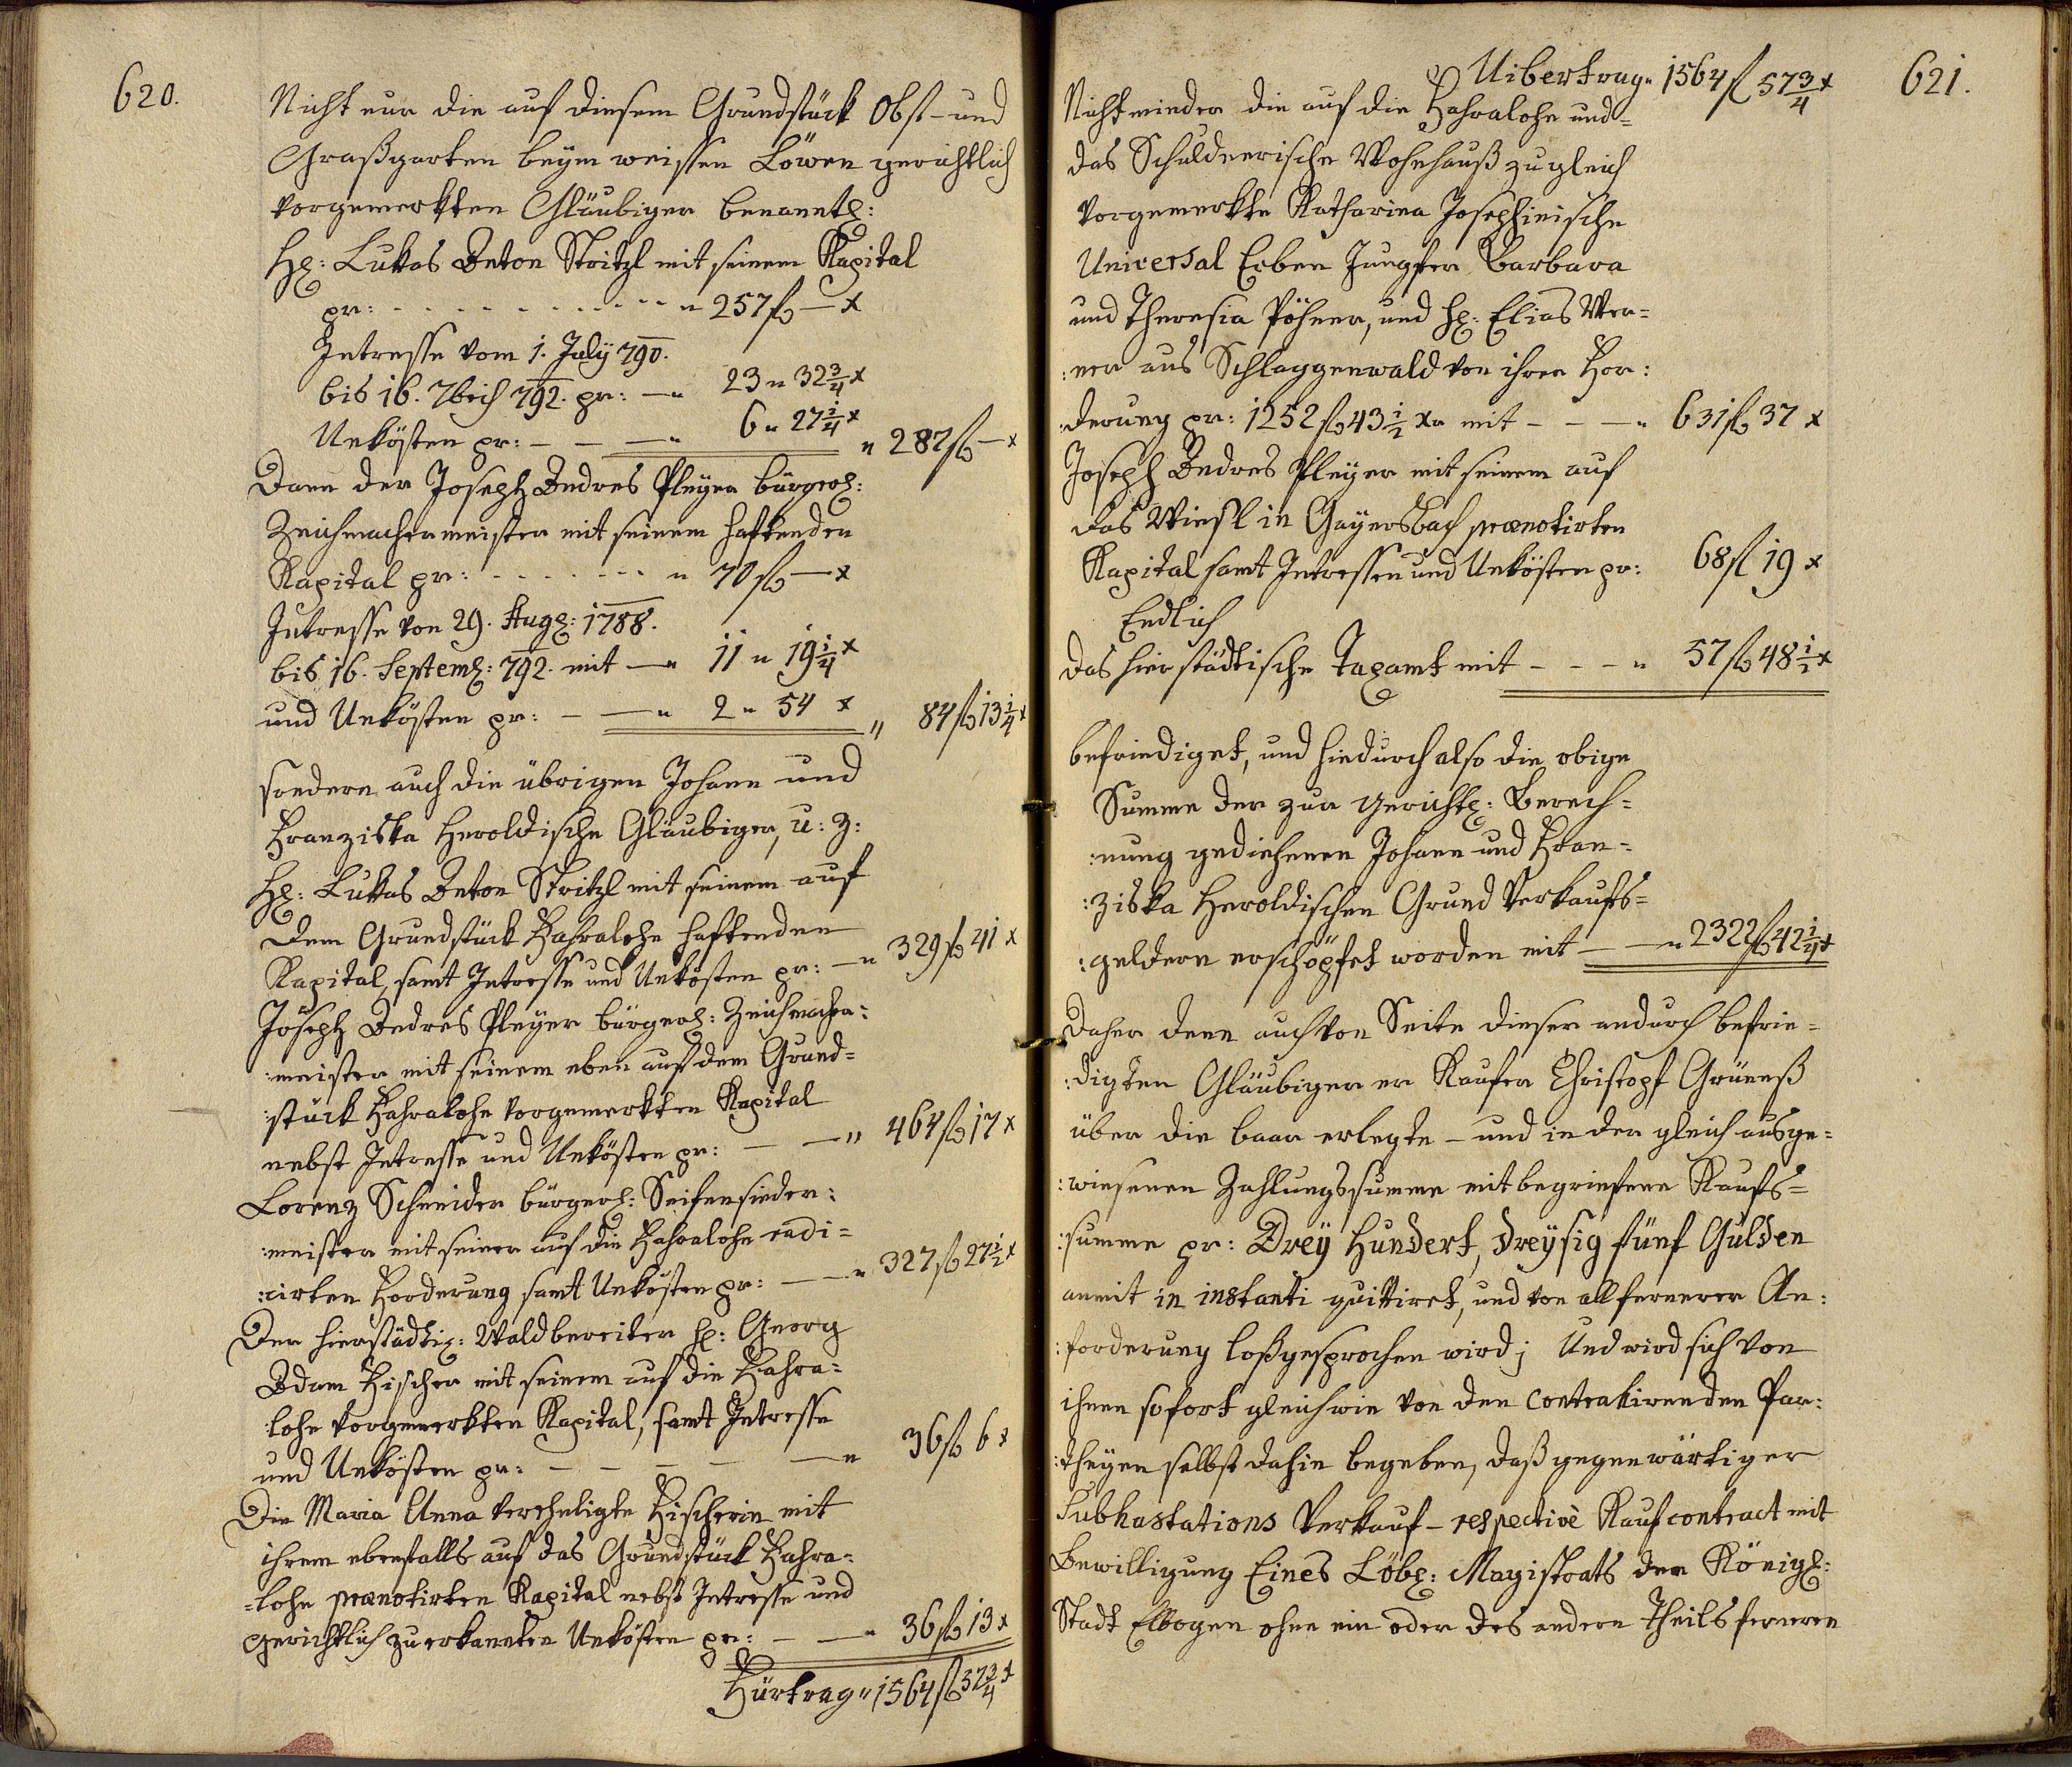 620.
Nicht nur die auf diesem Grundstück Obst- und
Graßgarten beym weissen Löwen gerichtlich
vorgemerkten Gläubiger benanntl:
H: Lukas Anton Stritzl mit seinem Kapital
pr: - - - - - - - - - - - " 257 fl — x
Intresse vom 1. July 790.
bis 16. 7brich 792. pr: — " 23 " 32 3/4 x
Unkösten pr: — — — " 6 " 27 1/4 x
" 287 fl — x
Dann der Joseph Andres Pleyer bürgerl:
Zeichmachermeister mit seinem haftenden
Kapital pr: - - - - - - - " 70 fl — x
Intresse von 29. Aug: 1788.
bis 16. Septemb: 792. mit — " 11 " 19 1/4 x
und Unkösten pr: — — " 2 " 54 x
" 84 fl 13 1/4 x
sondern auch die übrigen Johann und
Franziska Heroldische Gläubiger, u: z:
H: Lukas Anton Stritzl mit seinem auf
dem Grundstück Hahralohe haftenden
Kapital, samt Intresse und Unkösten pr: — " 329 fl 41 x
Joseph Andres Pleyer bürgerl: Zeichmacher:
:meister mit seinem eben auf dem Grund=
:stück Hahralohe vorgemerkten Kapital
nebst Intresse und Unkösten pr: — — " 464 fl 17 x
Lorenz Schneider bürgerl: Seifensieder:
:meister mit seiner auf die Hahralohe radi=
:cirten Forderung samt Unkösten pr: — — " 327 fl 27 1/2 x
Der hierstädtis: Waldbereiter H: Georg
Adam Fischer mit seinem auf die Hahra=
:lohe vorgemerkten Kapital, samt Intresse
und Unkösten pr: — — — — — " 36 fl 6 x
Die Maria Anna verehligte Fischerin mit
ihrem ebenfalls auf das Grundstück Hahra=
=lohe prænotirten Kapital nebst Intresse und
gerichtlich zuerkannten Unkösten pr: — — " 36 fl 13 x
Fürtrag " 1564 fl 57 3/4 x
621.
Uibertrag " 1564 fl 57 3/4 x
Nicht minder die auf die Hahralohe und=
das Schuldnerische Wohnhauß zugleich
vorgemerkte Katharina Josephinische
Universal Erben Jungfer Barbara
und Theresia Pöhner, und H: Elias Wer=
:ner aus Schlaggenwald von ihrer For:
:derung pr: 1252 fl 43 1/2 xr mit — — — " 631 fl 37 x
Joseph Andres Pleyer mit seinem auf
das Wiesl in Gayersbach prænotirten
Kapital samt Intressen und Unkösten pr: 68 fl 19 x
Endlich
das hierstädtische Taxamt mit — — — " 57 fl 48 1/2 x
befriediget, und hiedurch also die obige
Summe der zur gerichtl: Berech=
:nung gediehenen Johann und Fran=
:ziska Heroldischen Grund Verkaufs=
:geldern erschöpfet worden mit — — " 2322 fl 42 1/4 x
Daher denn auch von Seite dieser andurch befrie=
:digten Gläubiger er Kaufer Christoph Grüneß
über die baar erlegte - und in der gleich ausge=
:wiesenen Zahlungssumme mitbegriefene Kaufs=
:summe pr: Drey Hundert, dreysig fünf Gulden
anmit in instanti quittiret, und von all fernerer An:
:forderung loßgesprochen wird; Und wird sich von
ihnen sofort gleichwie von den contrahirenden Par:
:theyen selbst dahin begeben, daß gegenwärtiger
Subhastations Verkauf - respective Kaufcontract mit
Bewilligung Eines Löbl: Magistrats der Königl:
Stadt Elbogen ohne ein oder des andern Theils ferneren